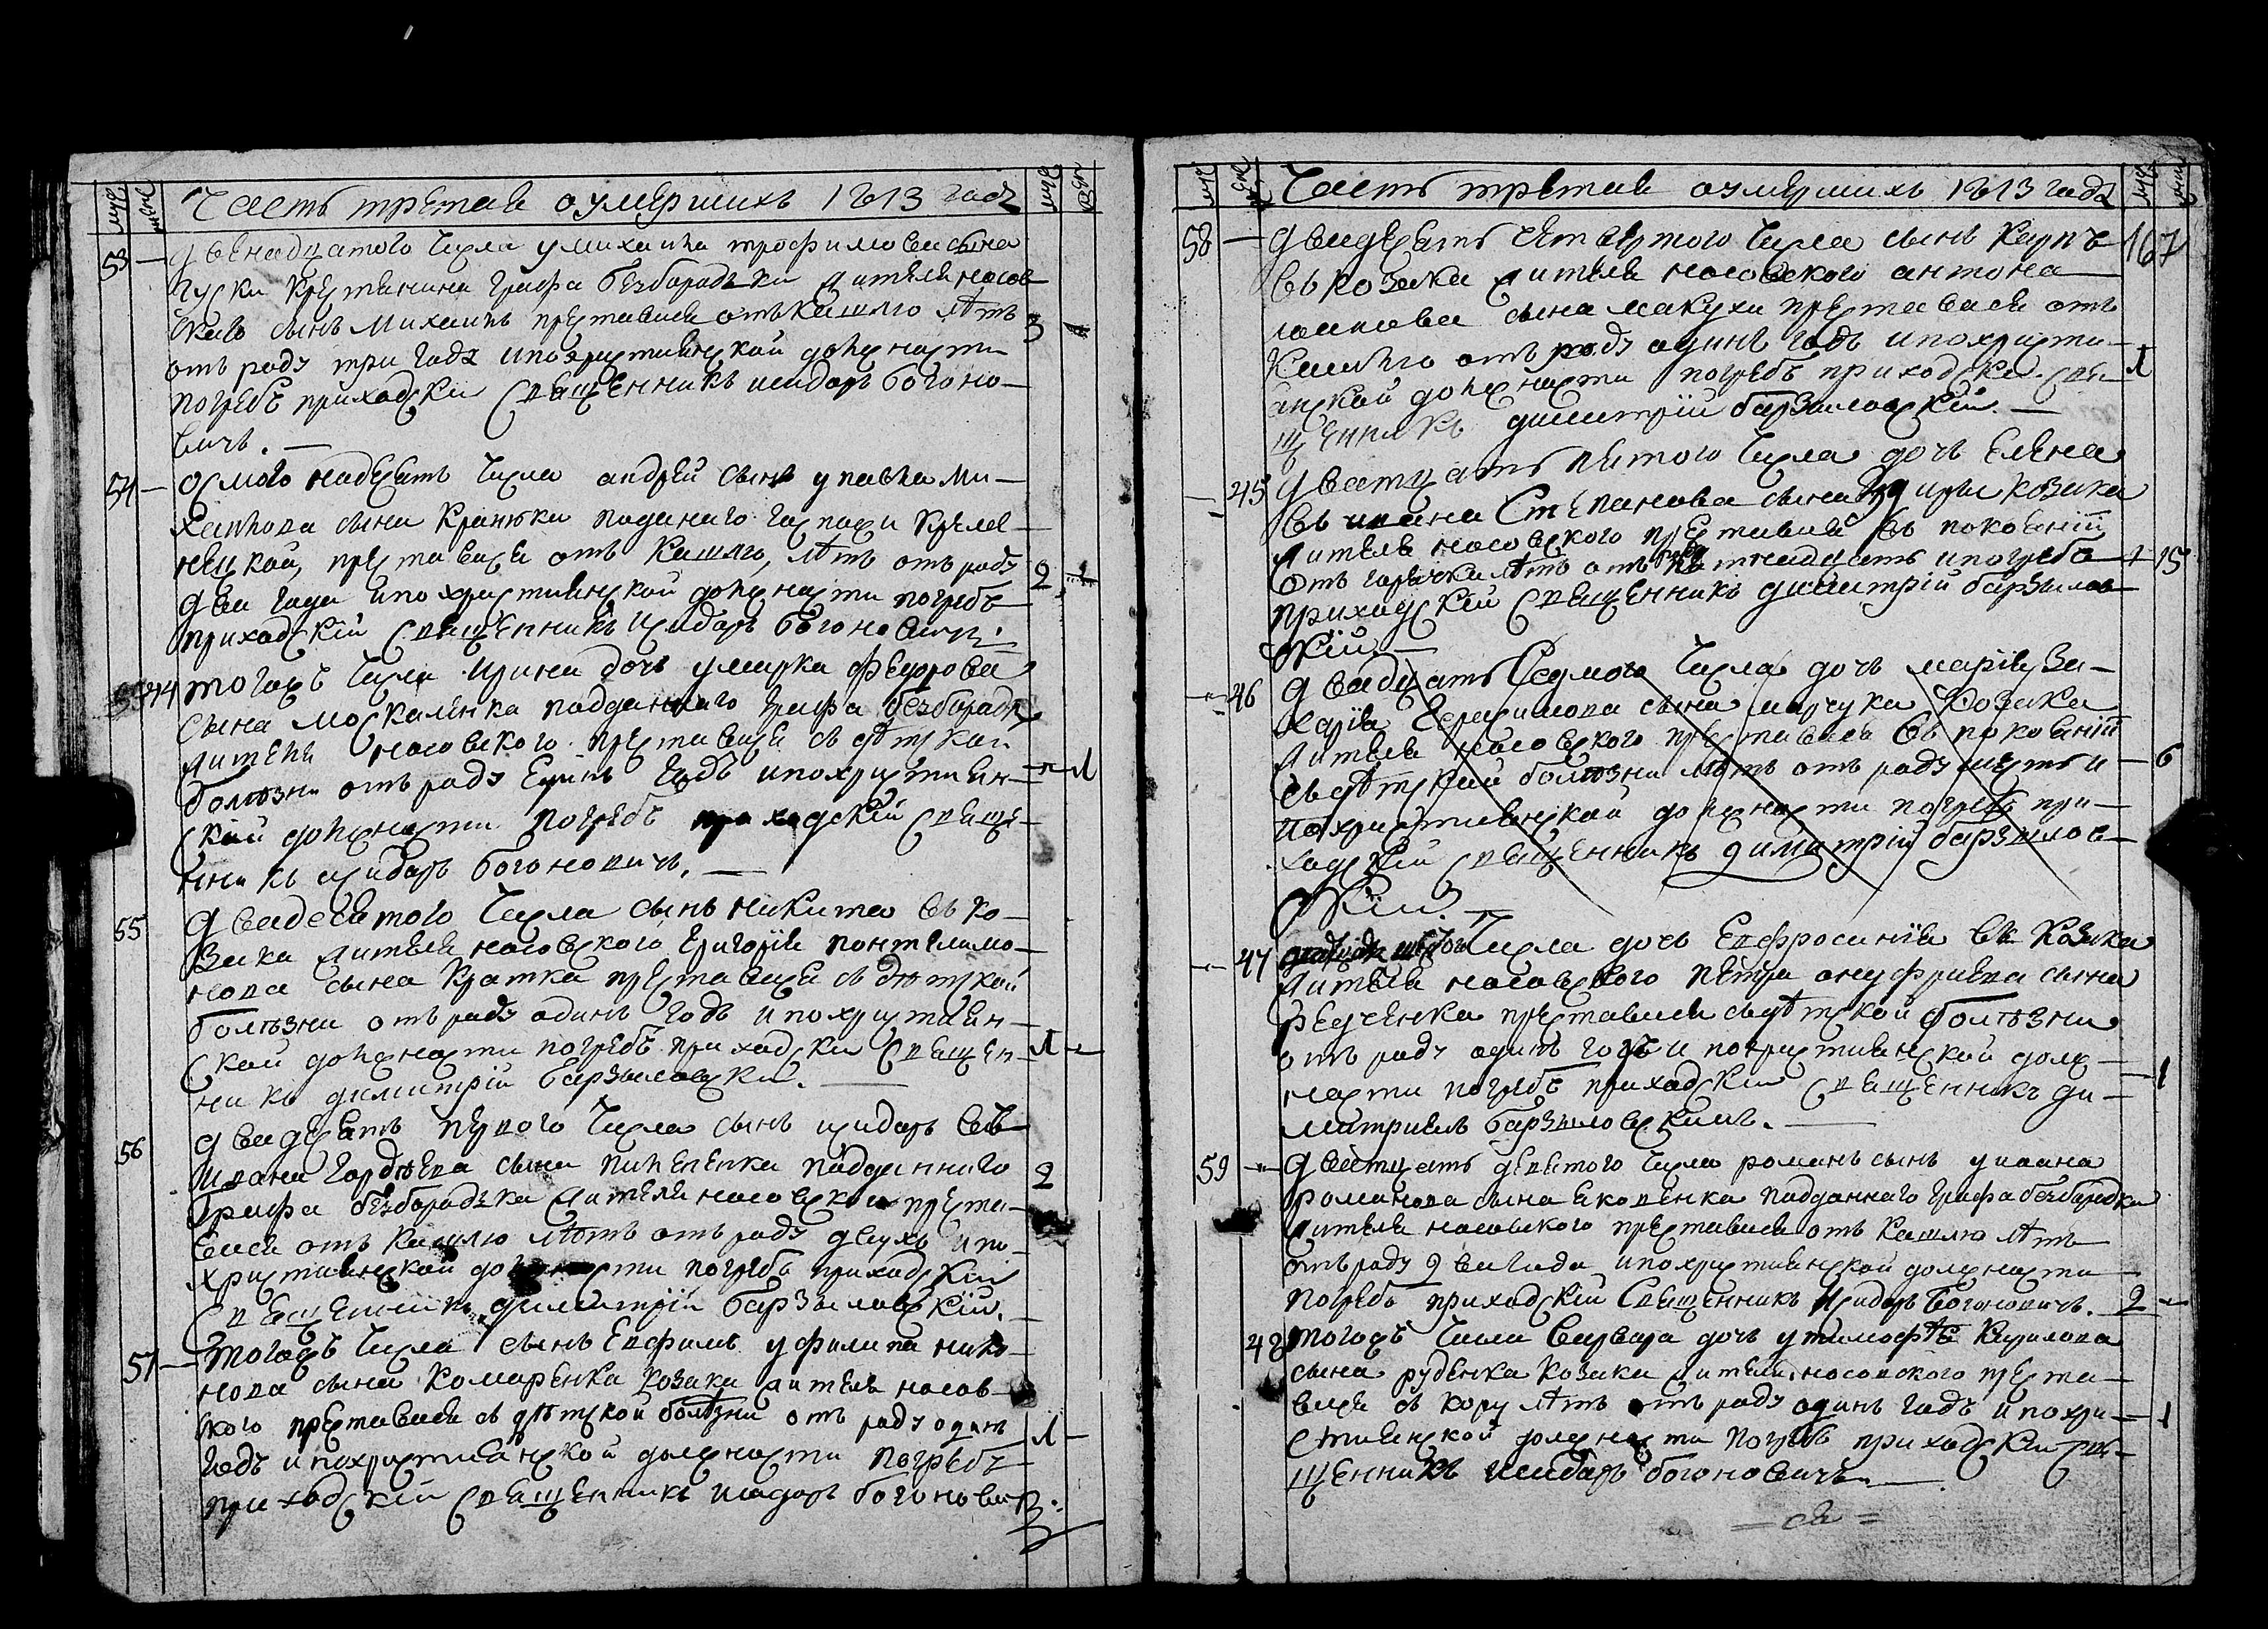 муж женс Часть третая о умершихъ 1813 года муж женс
53 — двенадцатого числа у михаила трофимова сына
гуски крестянина графа безбородки жителя носов
ского сынъ Михаилъ преставися отъ кашлю лѣтъ 3
отъ роду три года и по християнской должности
погребъ приходскии священникъ исидоръ богоно–
вичъ. —
54 — осмого надесять числа андрей сынъ у павла ми–
хайлова сына поданаго
преставися отъ кашлю, лѣтъ отъ роду 2
два года и по християнской должности погребъ
приходскій священникъ исидоръ богоновичъ.
44 тогожъ числа ирина дочь у марка федорова
сына москаленкаподданнаго графа безбородки
жителя носовского преставися съ дѣтской
болѣзни отъ роду единъ годъ и по християн– 1
ской должности погребъ приходскій священ–
никъ исидоръ богоновичъ. —
55 двадесятого числа сынъ никита въ ко–
зака жителя носовского григорія пантелимо–
нова сына кратка преставися съ дѣтской
болѣзни отъ роду одинъ годъ и по християн–
ской должности погребъ приходскии священ– 1
никъ димитрій барзыловскии. —
56 двадесять первого числа сынъ исидоръ въ
ивана гордѣева сына пилепенка подданного 2
графа безбородька жителя носовского преста–
вися отъ кашлю лѣтъ отъ роду двухъ и по
християнской должности погребъ приходскій
священникъ димитрій барзыловскій.
57 — тогожъ числа сынъ евфимъ у филипа
нова сына комаренка козака жителя носов–
ского преставися съ дѣтской болѣзни отъ роду одинъ
годъ и по християнской должности погребъ 1
приходскій священникъ исидоръ богоновичъ.
муж женс Часть третая о умершихъ 1813 года муж женс
58 — двадесять четвертого числа сынъ карпъ 167
въ козака жителя носовского антона
сына макухи преставися отъ
кашлю отъ роду одинъ годъ и по христи–
янской должности погребъ приходскии свя– 1
щенникъ димитрій барзыловскій. —
45 дватцать пятого числа дочь елена
въ ивана Степанова сына козака
жителя носовского преставися въ покояніи
отъ горячки лѣтъ отъ роду пятнадцать и погребъ 15
приходскій священникъ димитрій барзылов
скій. —
46 двадцать седмого числа дочь марія у за–
харія герасимова сына марчука козака
жителя носовского преставися въ покояніи
съ дѣтской болѣзни лѣтъ отъ роду шесть и 6
по християнской должности погребъ при–
ходскій священникъ димитрій барзылов–
скій. —
47 числа дочь Евфросинія въ козака
жителя носовского петра онуфриева сына
федченка преставися съ дѣтской болѣзни
отъ роду одинъ годъ и по християнской долж–
ности погребъ приходскии священникъ ди– 1
митриемъ барзыловскимъ. —
59 дватцать девятого числа романъ сынъ у ивана
романова сына яковенка подданнаго графа безбородка
жителя носовского преставися отъ кашлю лѣтъ
отъ роду два года и по християнской должности
погребъ приходскій священникъ исидоръ богоновичъ. 2
48 тогожъ числа варвара дочь у тимофѣя кирилова
сына руденка козака жителя носовского преста–
вися съ кору лѣтъ отъ роду одинъ годъ и по хри– 1
стиянской должности погребъ приходскии свя–
щенникъ исидоръ богоновичъ. —